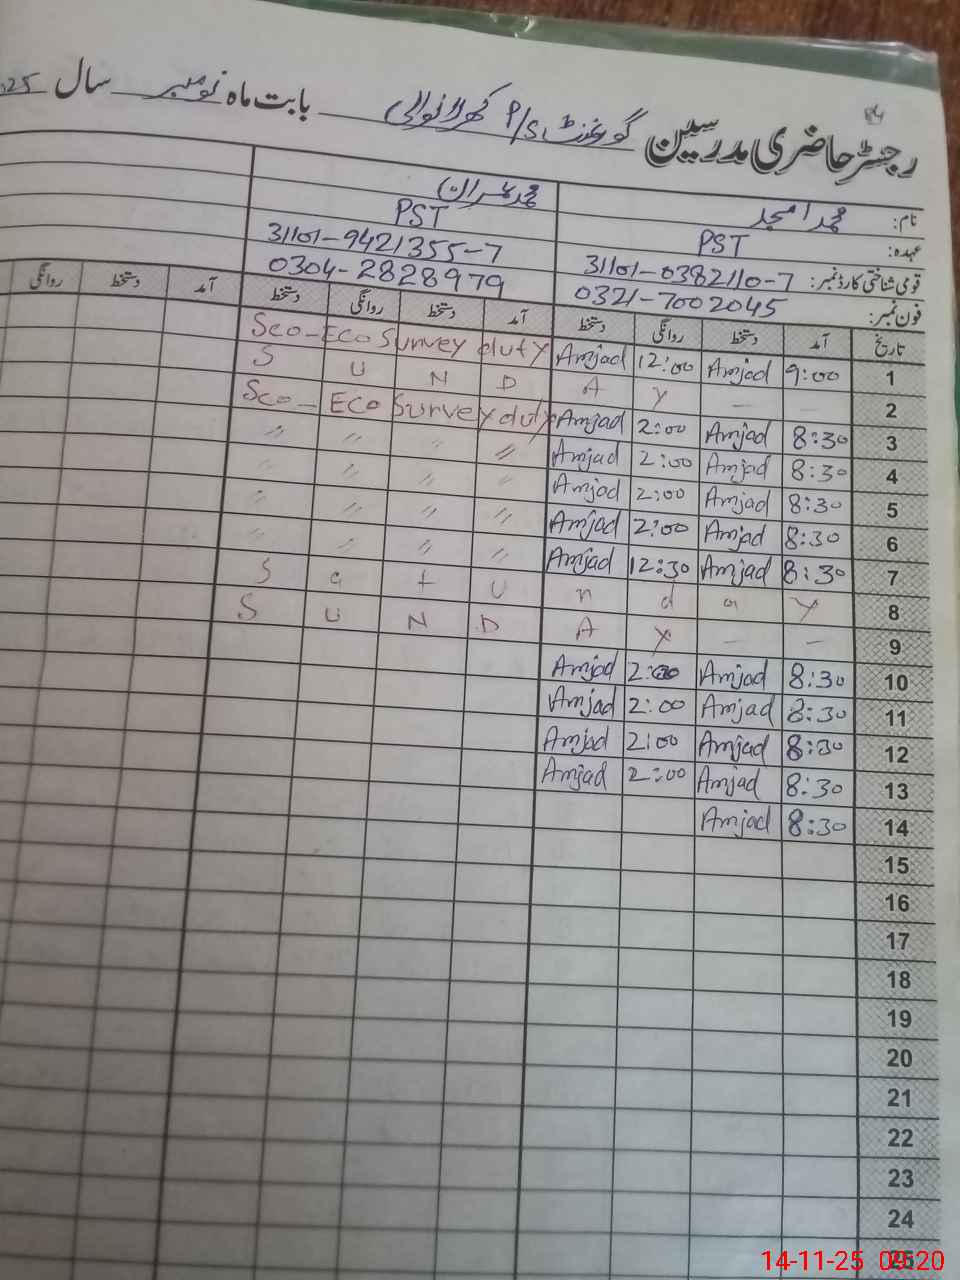 رجسٹر حاضری مدرسین گورنمنٹ P/S کھرلانوالی بابت ماہ نومبر سال 25
نام: محمد امجد محمد عمران
عہدہ: PST PST
قومی شناختی کارڈ نمبر: 31101-0382110-7 31101-9421355-7
فون نمبر: 0321-7002045 0304-2828979
تاریخ آمد دستخط روانگی دستخط آمد دستخط روانگی دستخط آمد دستخط روانگی
1 9:00 Amjad 12:00 Amjad Sco-Eco Survey duty
2 S U N D A Y — —
3 8:30 Amjad 2:00 Amjad Sco-Eco Survey duty
4 8:30 Amjad 2:00 Amjad // // // //
5 8:30 Amjad 2:00 Amjad // // // //
6 8:30 Amjad 2:00 Amjad // // // //
7 8:30 Amjad 12:30 Amjad // // // //
8 S a t u n d a y
9 S U N D A Y — —
10 8:30 Amjad 2:00 Amjad
11 8:30 Amjad 2:00 Amjad
12 8:30 Amjad 2:00 Amjad
13 8:30 Amjad 2:00 Amjad
14 8:30 Amjad
15
16
17
18
19
20
21
22
23
24
25
14-11-25 09:20